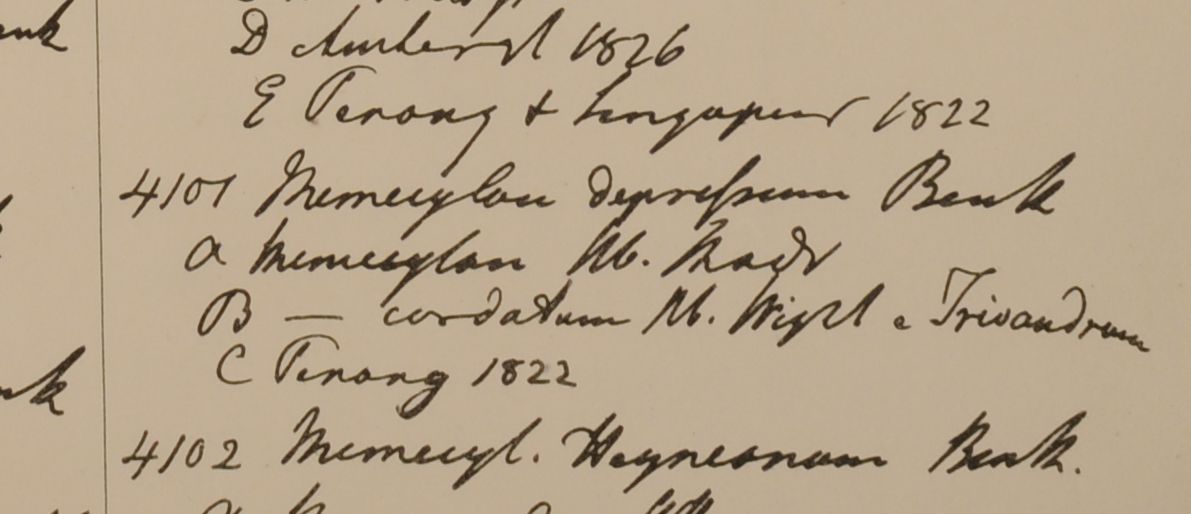 D Amherst 1826
E Penang & Singapur 1822
4101 Memecylon depressum Benth
a Memecylon Hb. Madr
B — cordatum Hb. Wight e Trivandrum
C Penang 1822
4102 Memecyl. Heyneanum Benth.